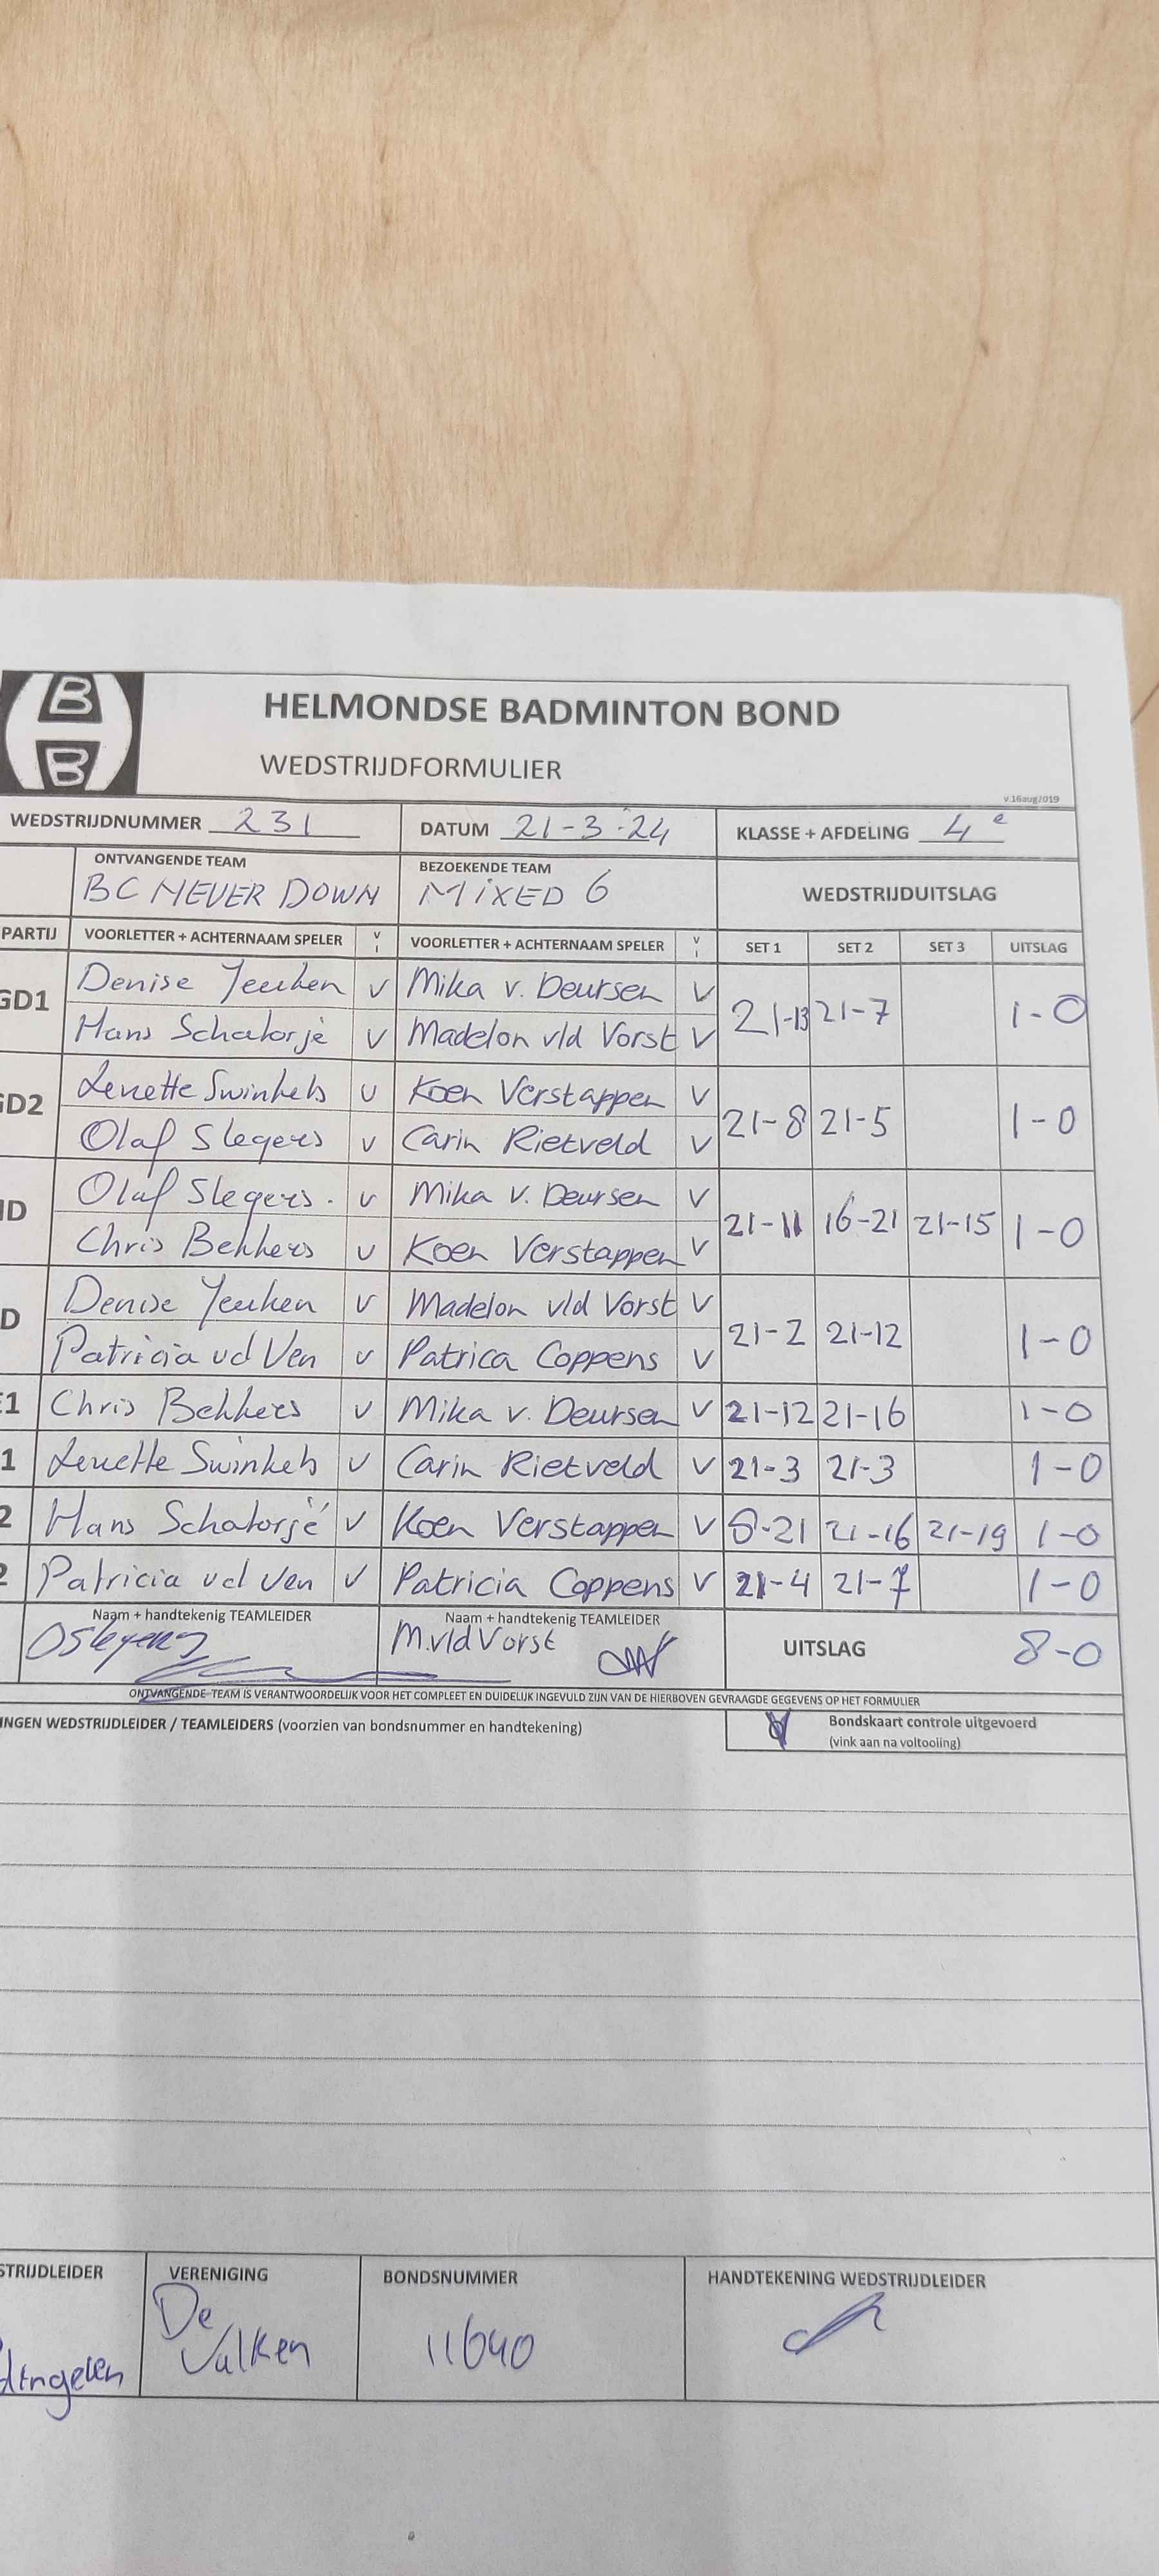 B
B
HELMONDSE BADMINTON BOND
WEDSTRIJDFORMULIER
v.16aug2019
WEDSTRIJDNUMMER 231 DATUM 21-3-24 KLASSE + AFDELING 4e
ONTVANGENDE TEAM BEZOEKENDE TEAM
BC NEVER DOWN MiXED 6 WEDSTRIJDUITSLAG
PARTIJ VOORLETTER + ACHTERNAAM SPELER V I VOORLETTER + ACHTERNAAM SPELER V I SET 1 SET 2 SET 3 UITSLAG
Denise Jeuken V Mika v. Deursen V
GD1 21-13 21-7 1-0
Hans Schatorjé V Madelon v/d Vorst V
Lenette Swinkels V Koen Verstappen V
GD2 21-8 21-5 1-0
Olaf Slegers V Carin Rietveld V
Olaf Slegers. V Mika v. Deursen V
HD 21-11 16-21 21-15 1-0
Chris Bekkers V Koen Verstappen V
Denise Jeuken V Madelon v/d Vorst V
D 21-2 21-12 1-0
Patricia vd Ven V Patrica Coppens V
E1 Chris Bekkers V Mika v. Deursen V 21-12 21-16 1-0
1 Lenette Swinkels V Carin Rietveld V 21-3 21-3 1-0
2 Hans Schatorjé V Koen Verstappen V 8-21 21-16 21-19 1-0
2 Patricia vd Ven V Patricia Coppens V 21-4 21-7 1-0
Naam + handtekenig TEAMLEIDER Naam + handtekenig TEAMLEIDER
OSlegers M.v/d Vorst UITSLAG 8-0
ONTVANGENDE TEAM IS VERANTWOORDELIJK VOOR HET COMPLEET EN DUIDELIJK INGEVULD ZIJN VAN DE HIERBOVEN GEVRAAGDE GEGEVENS OP HET FORMULIER
INGEN WEDSTRIJDLEIDER / TEAMLEIDERS (voorzien van bondsnummer en handtekening) Bondskaart controle uitgevoerd
(vink aan na voltooiing)
STRIJDLEIDER VERENIGING BONDSNUMMER HANDTEKENING WEDSTRIJDLEIDER
De
Valken 11640